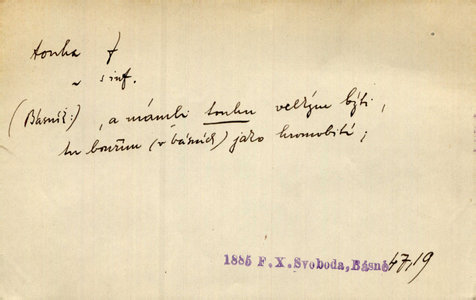 touha f
~ s inf.
(Básník:) , a mám-li touhu velkým býti,
tu bouřím (v básních) jako hromobití;
1885 F.X.Svoboda, Básně 47,19